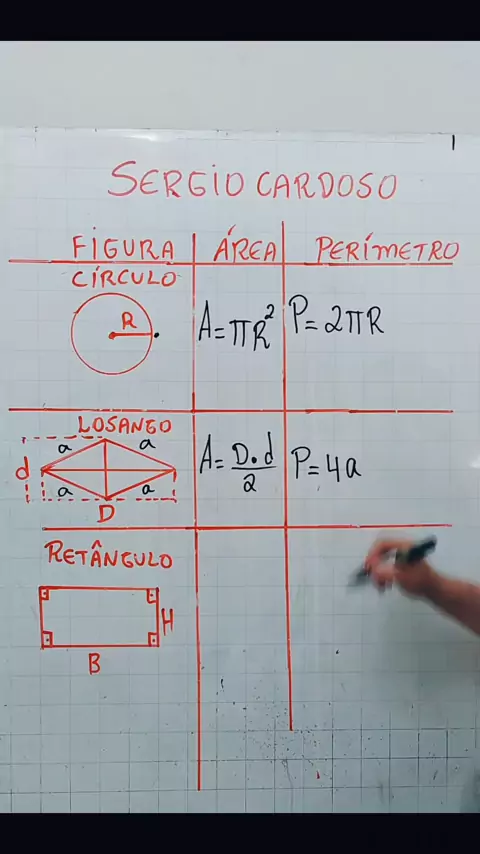 SERGIO CARDOSO
FIGURA ÁREA PERÍMETRO
CÍRCULO
R
A=πR² P=2πR
LOSANGO
a a
d
a a
D
A=D•d/2 P=4a
RETÂNGULO
H
B